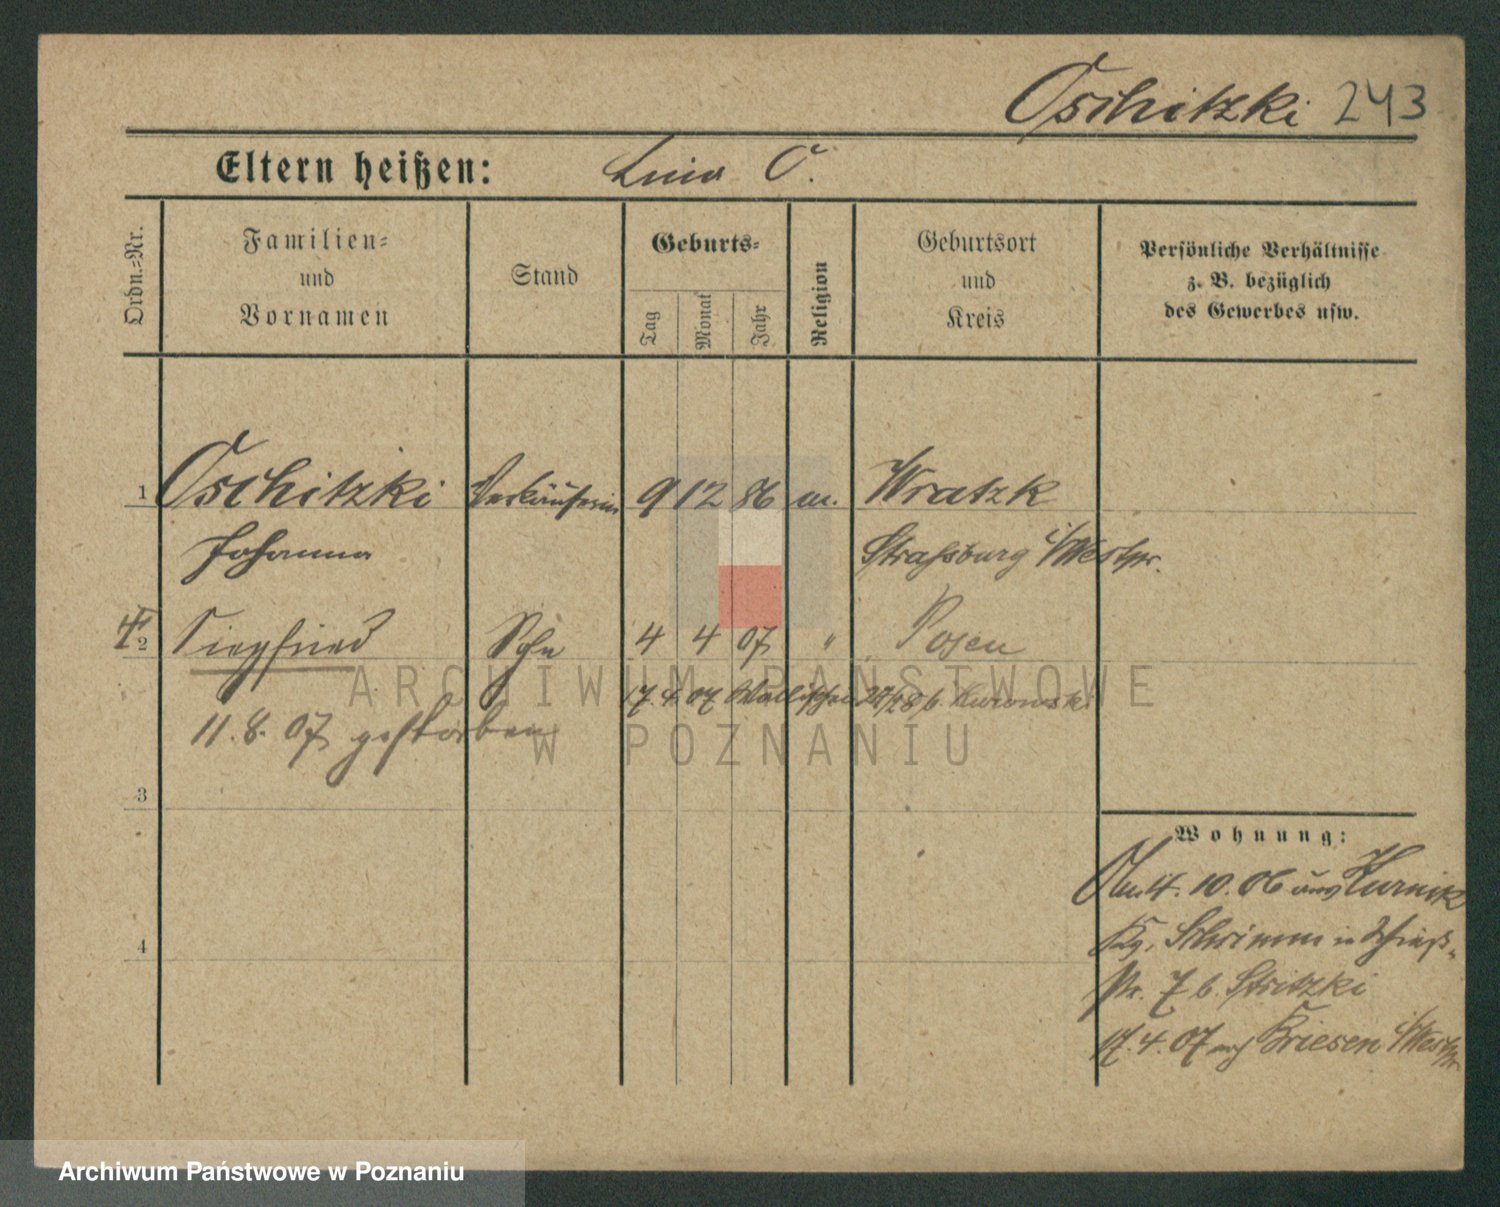 Oschitzki 243
Eltern heißen: O.
Ordn.-Nr.
Familien-
und
Vornamen
Stand
Geburts-
Tag
Monat
Jahr
Religion
Geburtsort
und
Kreis
Persönliche Verhältnisse
z. B. bezüglich
des Gewerbes usw.
1 Oschitzki Verkäuferin 9 12 86 m. Wratzk
Johanna Straßburg i/Westpr.
2 Siegfried Sohn 4 4 07 " Posen
17. 4. 07 Wallischei 27/28 b.
11. 8. 07 gestorben
3
4
Wohnung:
Am 4. 10. 06 aus Kurnik
Schrimm in Schieß-
str. 7 b. Stritzki
17. 4. 07 nach Briesen i/Westpr
ARCHIWUM PAŃSTWOWE
W POZNANIU
Archiwum Państwowe w Poznaniu